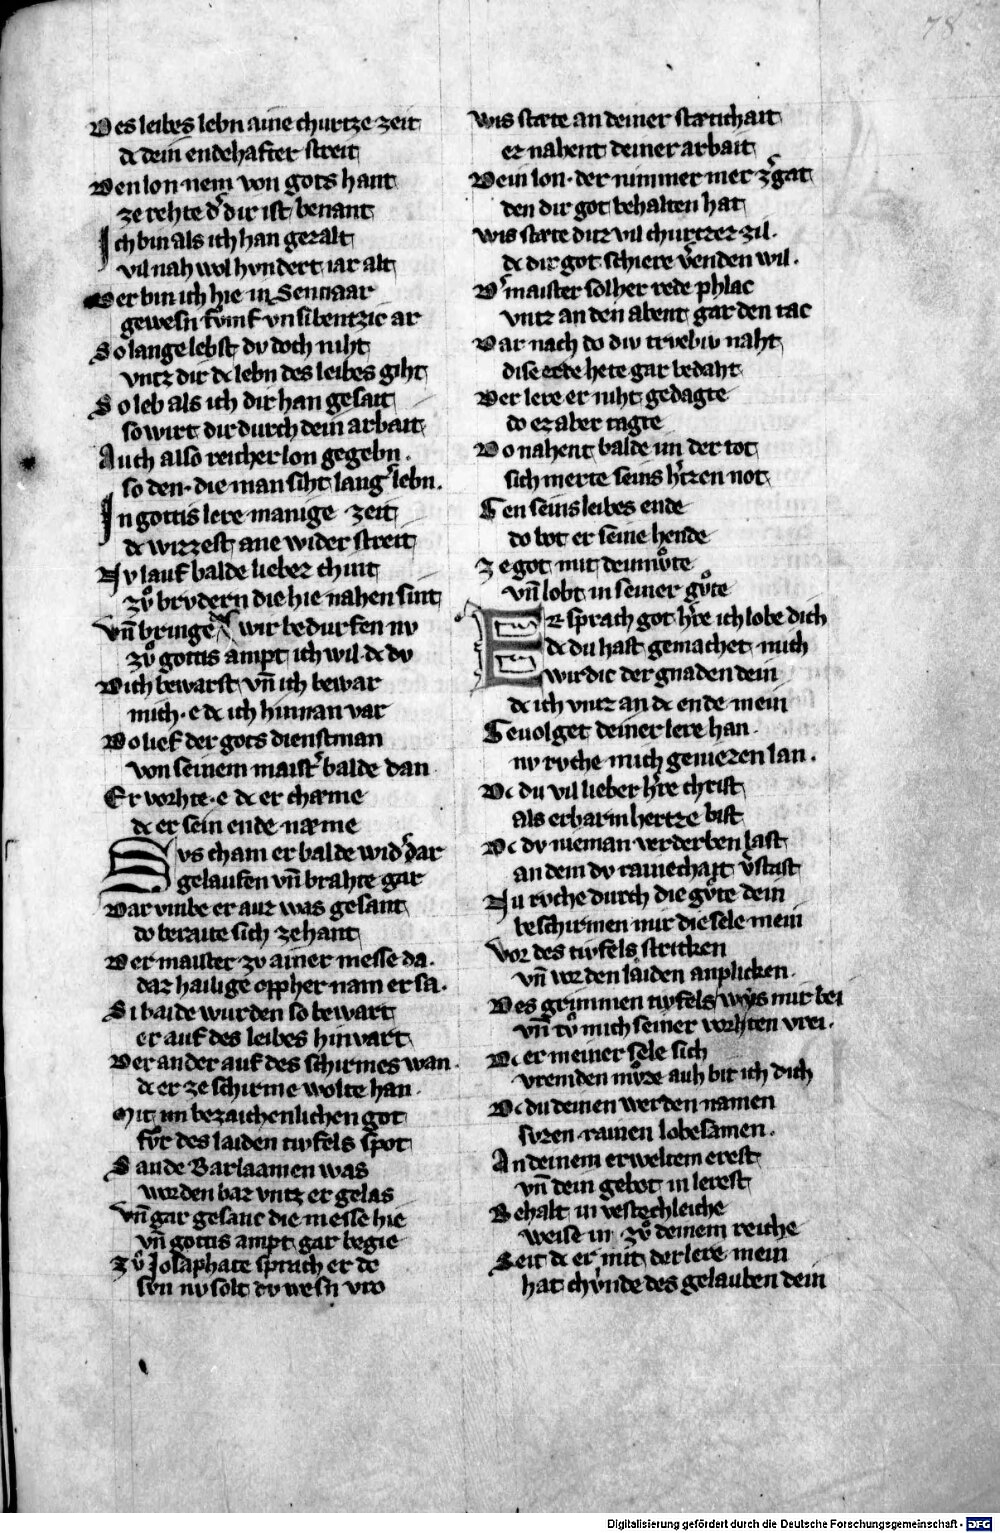 78
Des leibes lebn aine churtze zeit
dc dein endehafter streit
Den lon nem von gots hant
ze rehte dˢ dir ist benant
Ich bin als ich han gezalt
vil nah wol hvndert iar alt
Der bin ich hie in Sennaar
gewesn fvmf vn sibentzic ar
So lange lebst dv doch niht
vntz dir dc lebn des leibes giht
So leb als ich dir han gesait
so wirt dir durch dein arbait
Auch also reicher lon gegebn.
so den. die man siht langˢ lebn.
In gottis lere manige zeit
dc wizzest ane wider streit
Nv lauf balde lieber chint
zvͦ brvdern die hie nahen sint
vn̄ bringe wir bedurfen nv
zvͦ gottis ampt ich wil dc dv
Dich bewarst vn̄ ich bewar
mich. e dc ich hinnan var
Do lief der gots dienstman
von seinem maistˢ balde dan
Er vorhte. e dc er chæme
dc er sein ende næme
Svs cham er balde widˢ dar
gelaufen vn̄ brahte gar
Dar vmbe er auz was gesant
do beraite sich zehant
Der maister zv ainer messe da.
daz hailige oppher nam er sa.
Si baide wurden so bewart
er auf des leibes hinvart
Der ander auf des schirmes wan.
dc er ze schirme wolte han.
Mit im bezaichenlichen got
fvͤr des laiden tivfels spot
Do Barlaamen was
worden baz vntz er gelas
vn̄ gar gesanc die messe hie
vn̄ gottis ampt gar begie
Zvͦ Josaphate sprach er do
svn nv solt dv wesn vro
wis stæte an deiner stætichait
ez nahent deiner arbait
Dein lon. der nimmer mer zˢgat
den dir got behalten hat
wis stæte ditz vil churtzez zil.
dc dir got schiere vˢenden wil.
Dˢ maister solher rede phlac
vntz an den abent gar den tac
Dar nach do div trvebiv naht
dise erde hete gar bedaht
Der lere er niht gedagte
do ez aber tagte
Do nahent balde im der tot
sich merte seins hˢtzen not
Gen seins leibes ende
do bot er seine hende
Ze got mit deimvͤte
vn̄ lobt in seiner gvͤte
Er sprach got hˢre ich lobe dich
dc du hast gemachet mich
wirdic der gnaden dein
dc ich vntz an dc ende mein
Gevolget deiner lere han.
nv rvche mich geniezen lan.
Dc du vil lieber hˢre christ
als erbarmhertze bist
Dc dv nieman verderben last
an dem dv rainechait vˢstast
Nu rvche durch die gvͤte dein
beschirmen mir die sele mein
Vor des tivfels stricken
vn̄ vor den laiden anplicken.
Des grimmen tivfels wis mir bei
vn̄ tvͦ mich seiner vorhten vrei.
Dc er meiner sele sich
vremden mvͤze auh bit ich dich
Dc du deinen werden namen
svzen rainen lobesamen.
An deinem erweltem erest
vn̄ dein gebot in lerest
Behalt in vestechleiche
weise in zvͦ deinem reiche
Seit dc er mit der lere mein
hat chvnde des gelauben dein
Digitalisierung gefördert durch die Deutsche Forschungsgemeinschaft - DFG